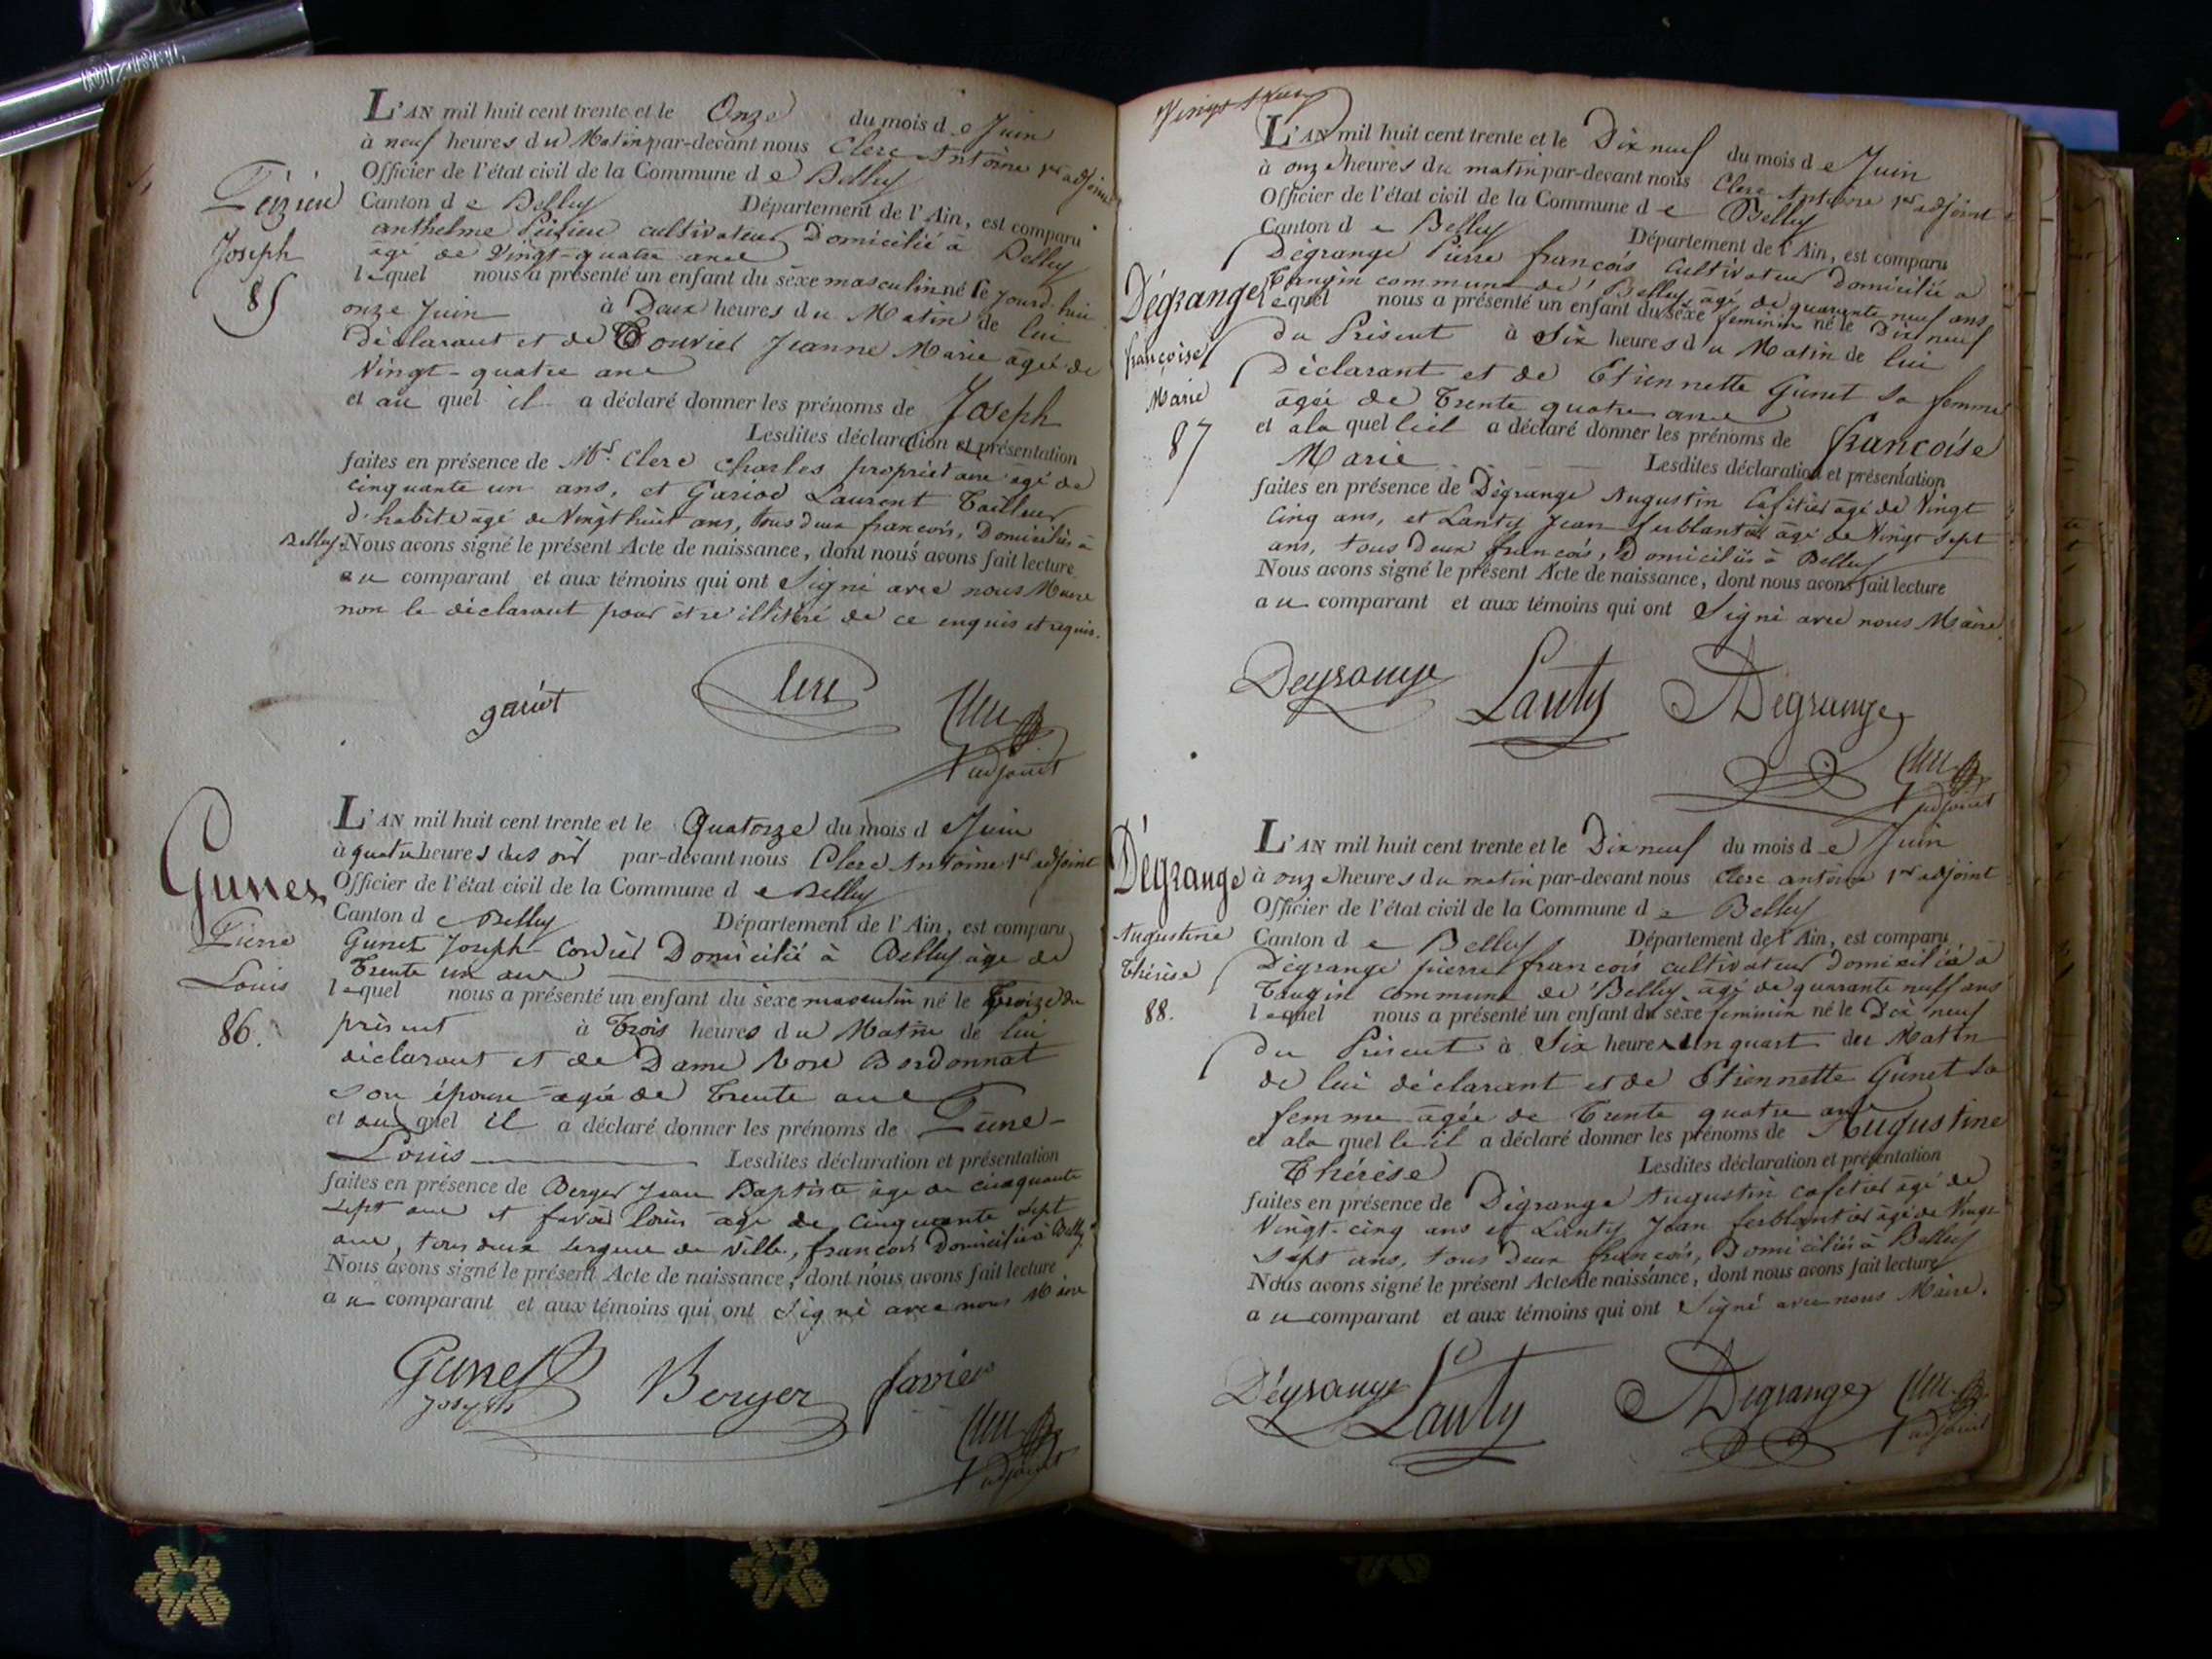 L'AN mil huit cent trente et le Onze du mois de Juin
à neuf heures du Matin par-devant nous Clerc Antoine 1er adjoint
Officier de l'état civil de la Commune de Belley
Canton de Belley Département de l'Ain, est comparu
anthelme Peizieu cultivateur Domicilié à Belley
âgé de Vingt-quatre ans
lequel nous a présenté un enfant du sèxe masculin né le jourd'hui
onze Juin à Deux heures du Matin de lui
Déclarant et de Jeanne Marie âgée de
Vingt-quatre ans
et au quel il a déclaré donner les prénoms de Joseph
Lesdites déclaration et présentation
faites en présence de Mr. Clerc Charles propriétaire âgé de
cinquante un ans, et Gariod Laurent Tailleur
d'habits âgé de Vingt huit ans, tous deux francois, Domiciliés à
Belley. Nous avons signé le présent Acte de naissance, dont nous avons fait lecture
au comparant et aux témoins qui ont Signé avec nous Maire
non le déclarant pour être illitéré de ce enquis et requis.
Peizieu
Joseph
85
gariot Clerc Clerc
1er adjoint
L'AN mil huit cent trente et le Quatorze du mois de Juin
à quatre heures du soir par-devant nous Clerc Antoine 1er adjoint
Officier de l'état civil de la Commune de Belley
Canton de Belley Département de l'Ain, est comparu
Gunet Joseph Cordier Domicilié à Belley âgé de
Trente un ans
lequel nous a présenté un enfant du sèxe masculin né le Treize du
présent à Trois heures du Matin de lui
déclarant et de Dame Rose Bordonnat
son épouse âgée de Trente ans
et au quel il a déclaré donner les prénoms de Pierre-
Louis Lesdites déclaration et présentation
faites en présence de Berger Jean Baptiste âgé de cinquante
sept ans et favier louis âgé de cinquante sept
ans, tous deux sergens de Ville, francois Domiciliés à Belley
Nous avons signé le présent Acte de naissance, dont nous avons fait lecture
au comparant et aux témoins qui ont Signé avec nous Maire
Gunet
Pierre
Louis
86.
Gunet Joseph Berger favier Clerc
1er adjoint
L'AN mil huit cent trente et le Dix neuf du mois de Juin
à onze heures du matin par-devant nous Clerc Antoine 1er adjoint
Officier de l'état civil de la Commune de Belley
Canton de Belley Département de l'Ain, est comparu
Dégrange Pierre francois Cultivateur Domicilié a
commune de Belley, âgé de quarante neuf ans
lequel nous a présenté un enfant du sèxe feminin né le Dix neuf
du Présent à Six heures du Matin de lui
Déclarant et de Etiennette Gunet sa femme
âgée de Trente quatre ans
et a la quelle il a déclaré donner les prénoms de francoise
Marie Lesdites déclaration et présentation
faites en présence de Dégrange Augustin Cafetier âgé de Vingt
Cinq ans, et Lanty Jean ferblantier âgé de Vingt sept
ans, tous Deux francois, Domiciliés à Belley
Nous avons signé le présent Acte de naissance, dont nous avons fait lecture
au comparant et aux témoins qui ont Signé avec nous Maire.
Dégrange
francoise
Marie
87
Degrange Lanty ADegrange
Clerc
1er adjoint
L'AN mil huit cent trente et le Dix neuf du mois de Juin
à onze heures du matin par-devant nous Clerc antoine 1er adjoint
Officier de l'état civil de la Commune de Belley
Canton de Belley Département de l'Ain, est comparu
Dégrange pierre francois cultivateur Domicilié à
commune de Belley âgé de quarante neuf ans
lequel nous a présenté un enfant du sèxe feminin né le Dix neuf
du Présent à Six heures un quart du Matin
de lui déclarant et de Etiennette Gunet sa
femme âgée de Trente quatre ans
et a la quelle il a déclaré donner les prénoms de Augustine
Thérèse Lesdites déclaration et présentation
faites en présence de Dégrange Augustin cafetier âgé de
Vingt-cinq ans et Lanty Jean ferblantier âgé de Vingt
Sept ans, tous Deux francois, Domiciliés à Belley
Nous avons signé le présent Acte de naissance, dont nous avons fait lecture
au comparant et aux témoins qui ont Signé avec nous Maire.
Dégrange
Augustine
Thérèse
88.
Dégrange Lanty ADegrange Clerc
1er adjoint